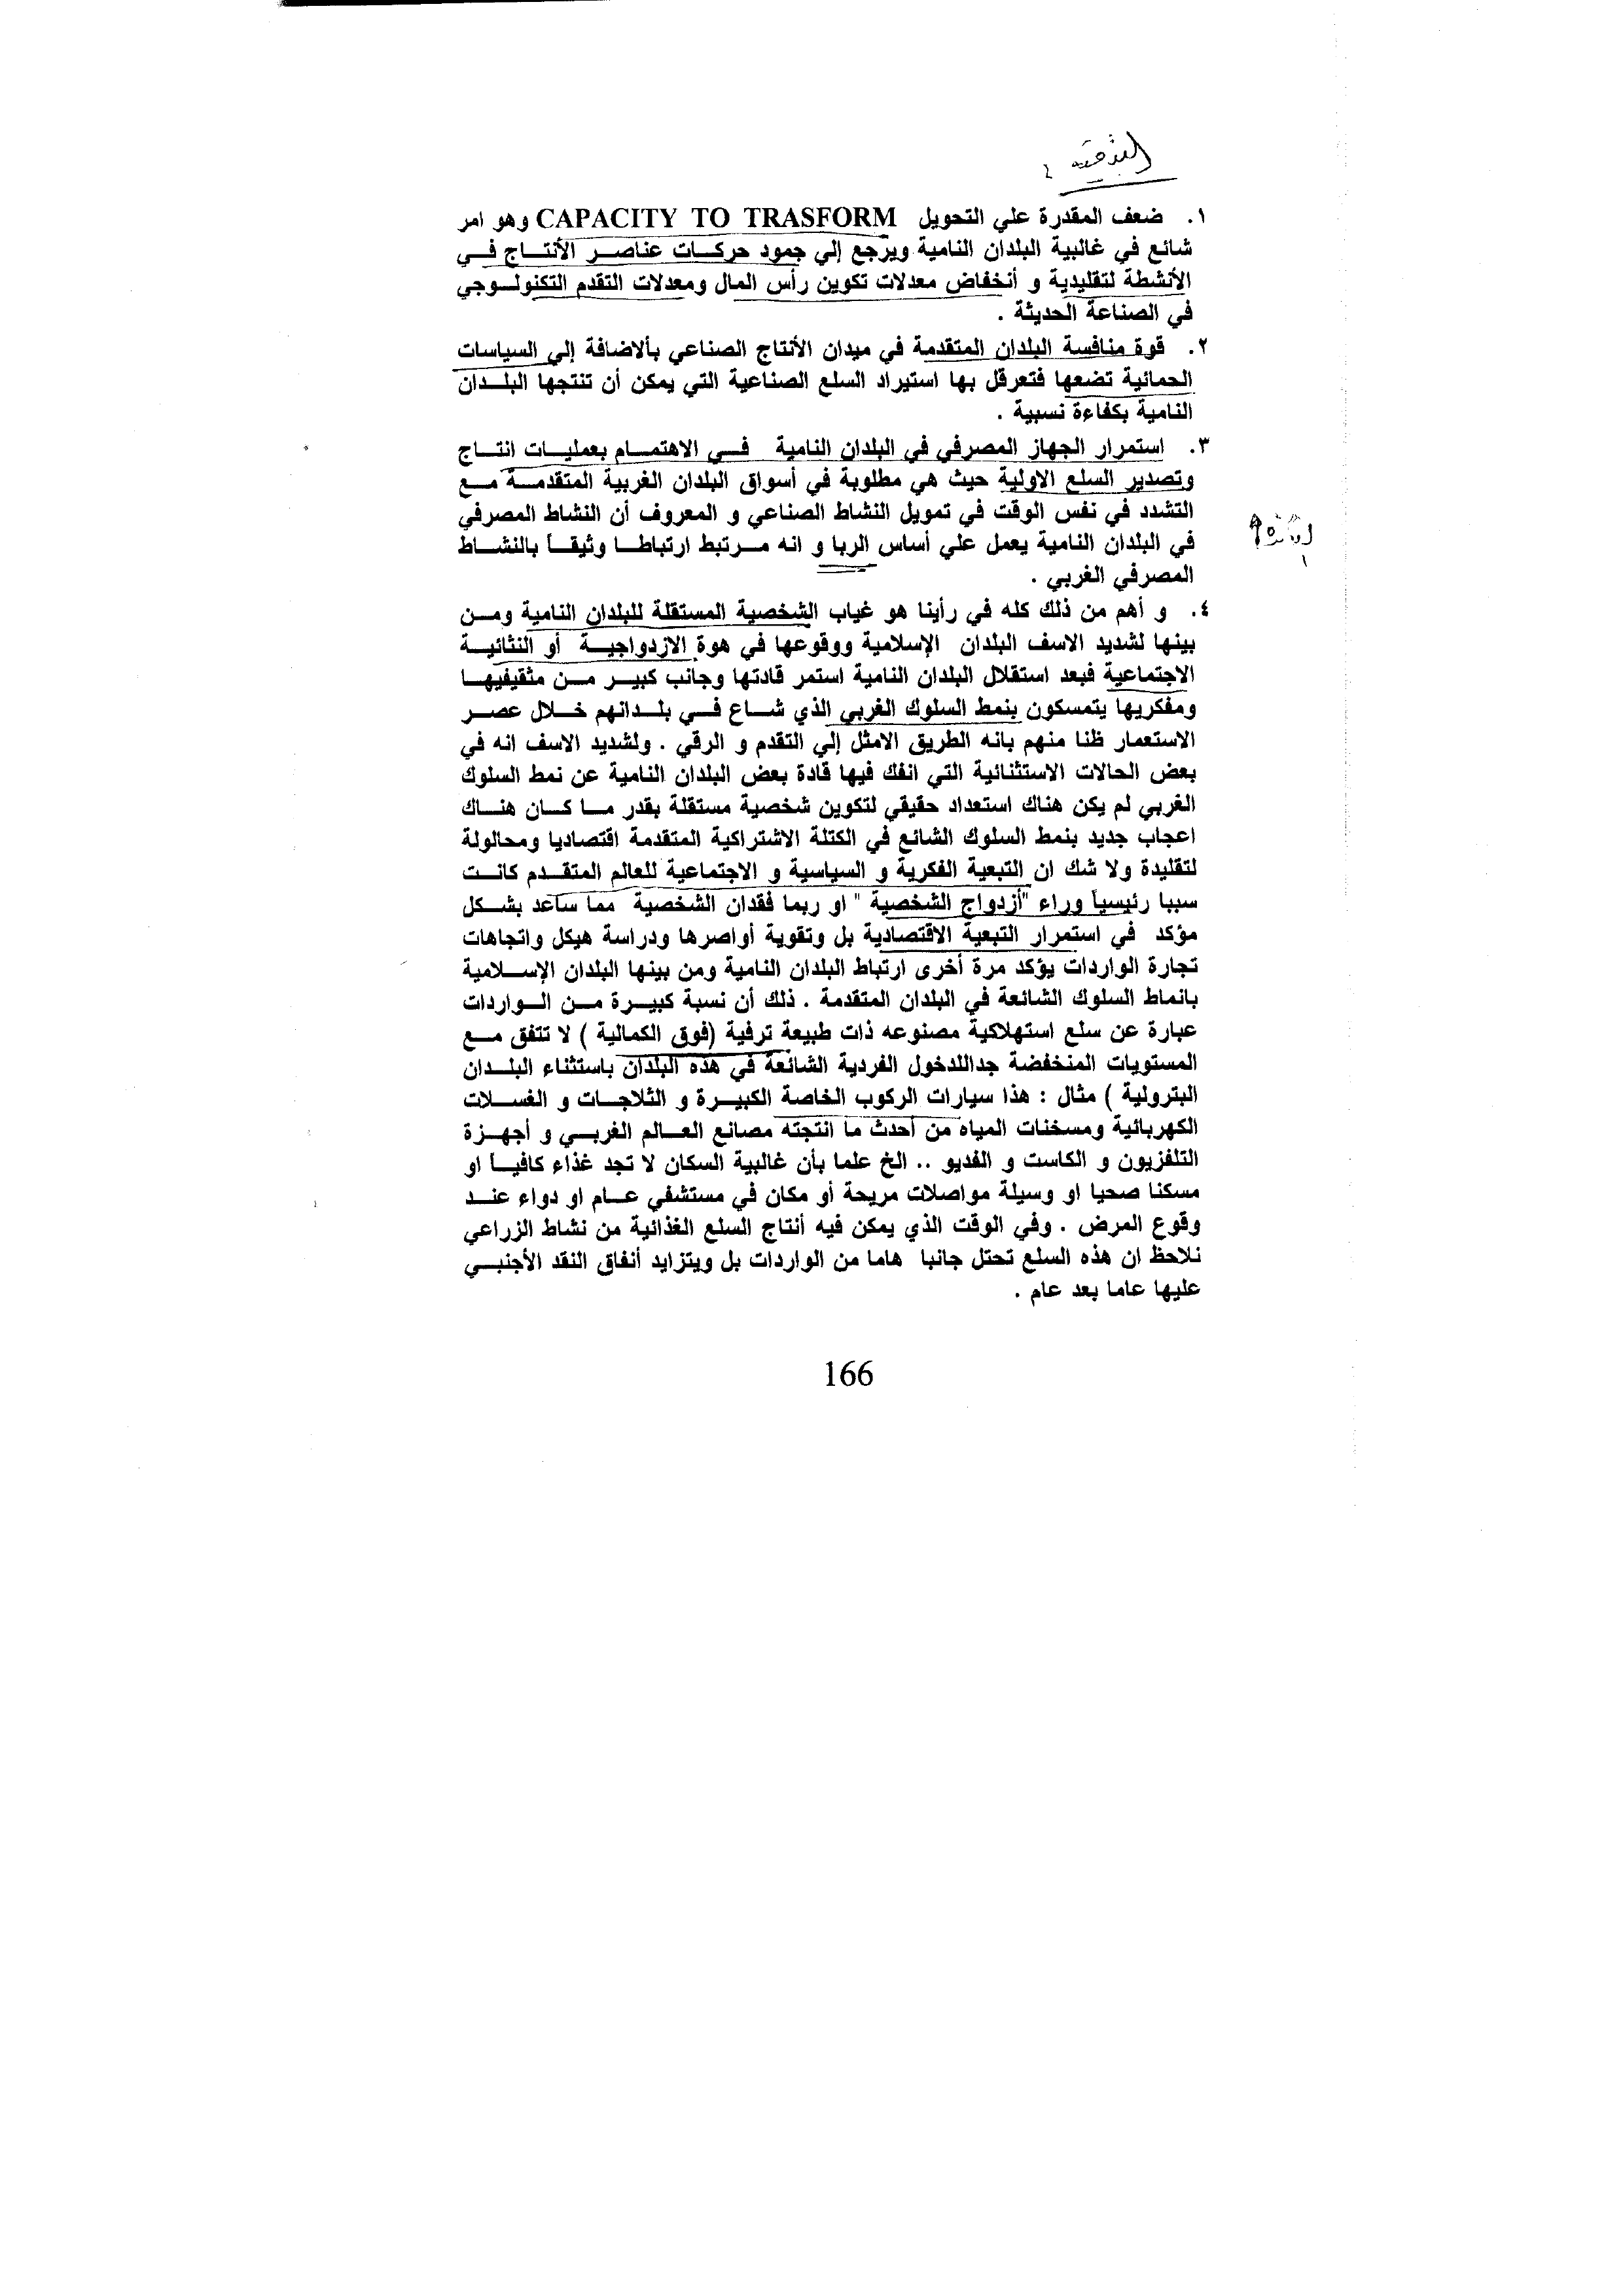 ١. ضعف المقدرة علي التحويل CAPACITY TO TRASFORM وهو امر
شائع في غالبية البلدان النامية ويرجع إلي جمود حركات عناصر الأنتاج في
الأنشطة لتقليدية و أنخفاض معدلات تكوين رأس المال ومعدلات التقدم التكنولوجي
في الصناعة الحديثة .
٢. قوة منافسة البلدان المتقدمة في ميدان الأنتاج الصناعي بألاضافة إلي السياسات
الحمائية تضعها فتعرقل بها استيراد السلع الصناعية التي يمكن أن تنتجها البلدان
النامية بكفاءة نسبية .
٣. استمرار الجهاز المصرفي في البلدان النامية في الاهتمام بعمليات انتاج
وتصدير السلع الاولية حيث هي مطلوبة في أسواق البلدان الغربية المتقدمة مع
التشدد في نفس الوقت في تمويل النشاط الصناعي و المعروف أن النشاط المصرفي
في البلدان النامية يعمل علي أساس الربا و انه مرتبط ارتباطا وثيقاً بالنشاط
المصرفي الغربي .
٤. و أهم من ذلك كله في رأينا هو غياب الشخصية المستقلة للبلدان النامية ومن
بينها لشديد الاسف البلدان الإسلامية ووقوعها في هوة الازدواجية أو الثنائية
الاجتماعية فبعد استقلال البلدان النامية استمر قادتها وجانب كبير من مثقيفيها
ومفكريها يتمسكون بنمط السلوك الغربي الذي شاع في بلدانهم خلال عصر
الاستعمار ظنا منهم بانه الطريق الامثل إلي التقدم و الرقي . ولشديد الاسف انه في
بعض الحالات الاستثنائية التي انفك فيها قادة بعض البلدان النامية عن نمط السلوك
الغربي لم يكن هناك استعداد حقيقي لتكوين شخصية مستقلة بقدر ما كان هناك
اعجاب جديد بنمط السلوك الشائع في الكتلة الاشتراكية المتقدمة اقتصاديا ومحالولة
لتقليدة ولا شك ان التبعية الفكرية و السياسية و الاجتماعية للعالم المتقدم كانت
سببا رئيسياً وراء "أزدواج الشخصية " او ربما فقدان الشخصية مما ساعد بشكل
مؤكد في استمرار التبعية الاقتصادية بل وتقوية أواصرها ودراسة هيكل واتجاهات
تجارة الواردات يؤكد مرة أخرى ارتباط البلدان النامية ومن بينها البلدان الإسلامية
بانماط السلوك الشائعة في البلدان المتقدمة . ذلك أن نسبة كبيرة من الواردات
عبارة عن سلع استهلاكية مصنوعه ذات طبيعة ترفية (فوق الكمالية ) لا تتفق مع
المستويات المنخفضة جداللدخول الفردية الشائعة في هذه البلدان باستثناء البلدان
البترولية ) مثال : هذا سيارات الركوب الخاصة الكبيرة و الثلاجات و الغسلات
الكهربائية ومسخنات المياه من أحدث ما انتجته مصانع العالم الغربي و أجهزة
التلفزيون و الكاست و الفديو .. الخ علما بأن غالبية السكان لا تجد غذاء كافياً او
مسكنا صحيا او وسيلة مواصلات مريحة أو مكان في مستشفي عام او دواء عند
وقوع المرض . وفي الوقت الذي يمكن فيه أنتاج السلع الغذائية من نشاط الزراعي
نلاحظ ان هذه السلع تحتل جانبا هاما من الواردات بل ويتزايد أنفاق النقد الأجنبي
عليها عاما بعد عام .
166